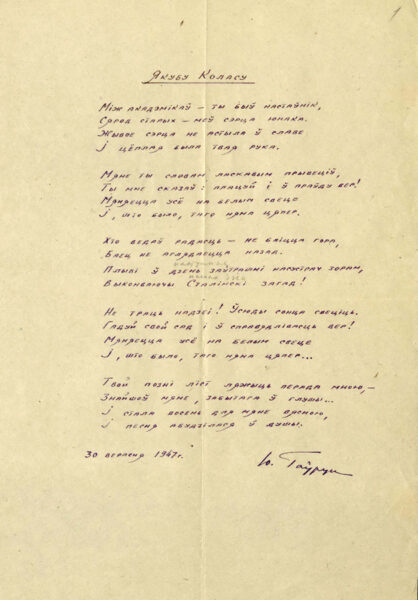 1
Якубу Коласу
Між акадэмікаў — ты быў настаўнік,
Сярод старых — меў сэрца юнака.
Жывое сэрца не астыла ў славе
І цёплая была твая рука.
Мяне ты словам ласкавым прывеціў,
Ты мне сказаў: працуй і ў праўду вер!
Мяняецца усё на белым свеце
І, што было, таго няма цяпер.
Хто ведаў радасць — не баіцца гора,
Баец не аглядаецца назад.
Плыві ў дзень заўтрашні насустрач зорам,
Выконваючы Сталінскі загад!
Не траць надзеі! Ўсюды сонца свеціць.
Гадуй свой сад і ў справядлівасць вер!
Мяняецца усё на белым свеце
І, што было, таго няма цяпер...
Твой позні ліст ляжыць перада мною,—
Знайшоў мяне, забытага ў глушы...
І стала восень для мяне вясною,
І песня абудзілася ў душы.
30 верасня 1947 г.
Ю. Гаўрук